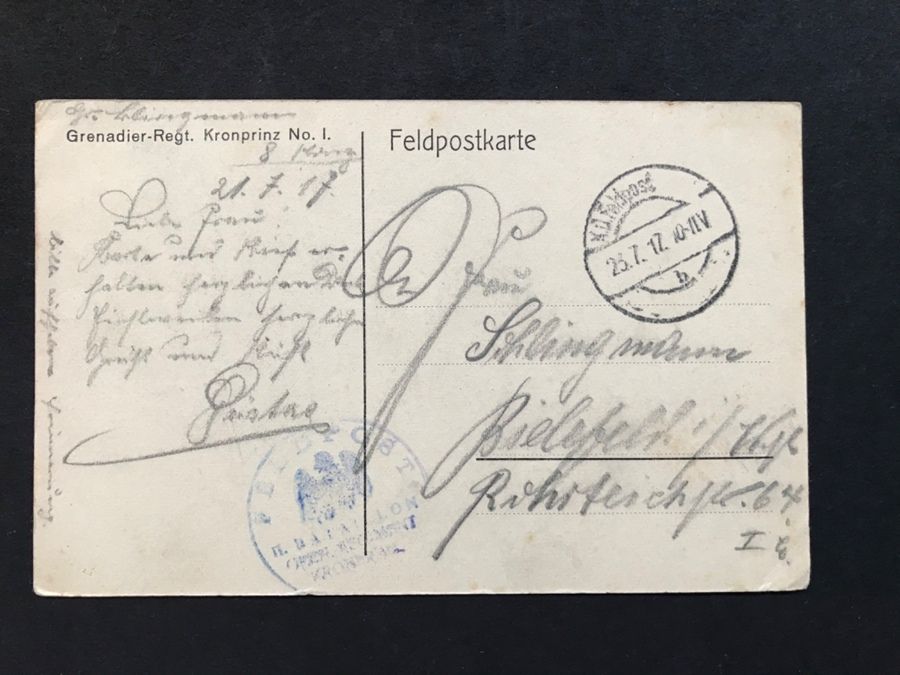 Gr. Schlingmann
Grenadier-Regt. Kronprinz No. I.
8 Komp.
21.7.17.
Liebe Frau!
Karte und Brief er-
halten herzlichen Dank
herzliche
Grüße und Küsse
Gustav
Feldpostkarte
K.D. Feldpost
23.7.17. 10-11V
b
Frau
Schlingmann
Bielefeld i/Wstf
Rohrteichstr. 64
I
FELDPOST
II. BATAILLON
GREN. REGIMENT
KRONPRINZ